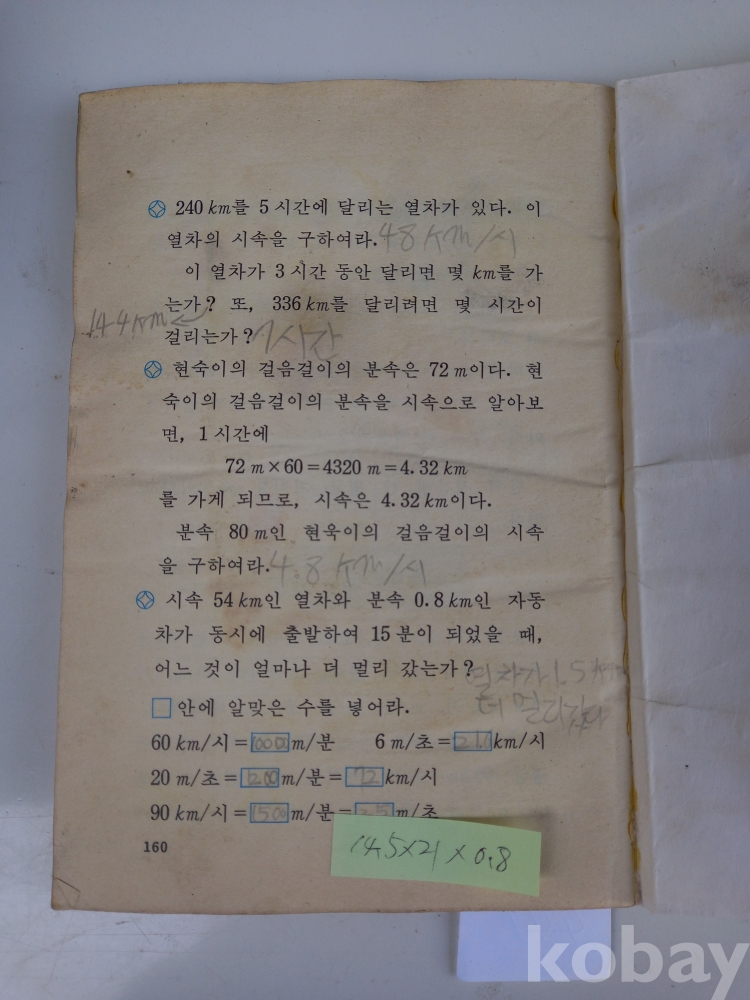 240 km를 5 시간에 달리는 열차가 있다. 이
열차의 시속을 구하여라. 48 km/시
이 열차가 3 시간 동안 달리면 몇 km를 가
는가? 또, 336 km를 달리려면 몇 시간이
144km
걸리는가? 7시간
현숙이의 걸음걸이의 분속은 72 m이다. 현
숙이의 걸음걸이의 분속을 시속으로 알아보
면, 1 시간에
72 m × 60 = 4320 m = 4.32 km
를 가게 되므로, 시속은 4.32 km이다.
분속 80 m인 현욱이의 걸음걸이의 시속
을 구하여라. 4.8 km/시
시속 54 km인 열차와 분속 0.8 km인 자동
차가 동시에 출발하여 15 분이 되었을 때,
어느 것이 얼마나 더 멀리 갔는가?
열차가 1.5 km
더 멀리 갔다
□ 안에 알맞은 수를 넣어라.
60 km/시 = 1000 m/분 6 m/초 = km/시
20 m/초 = 1200 m/분 = 72 km/시
90 km/시 = 1500 m/분 = 25 m/초
160
14.5×21×0.8
kobay